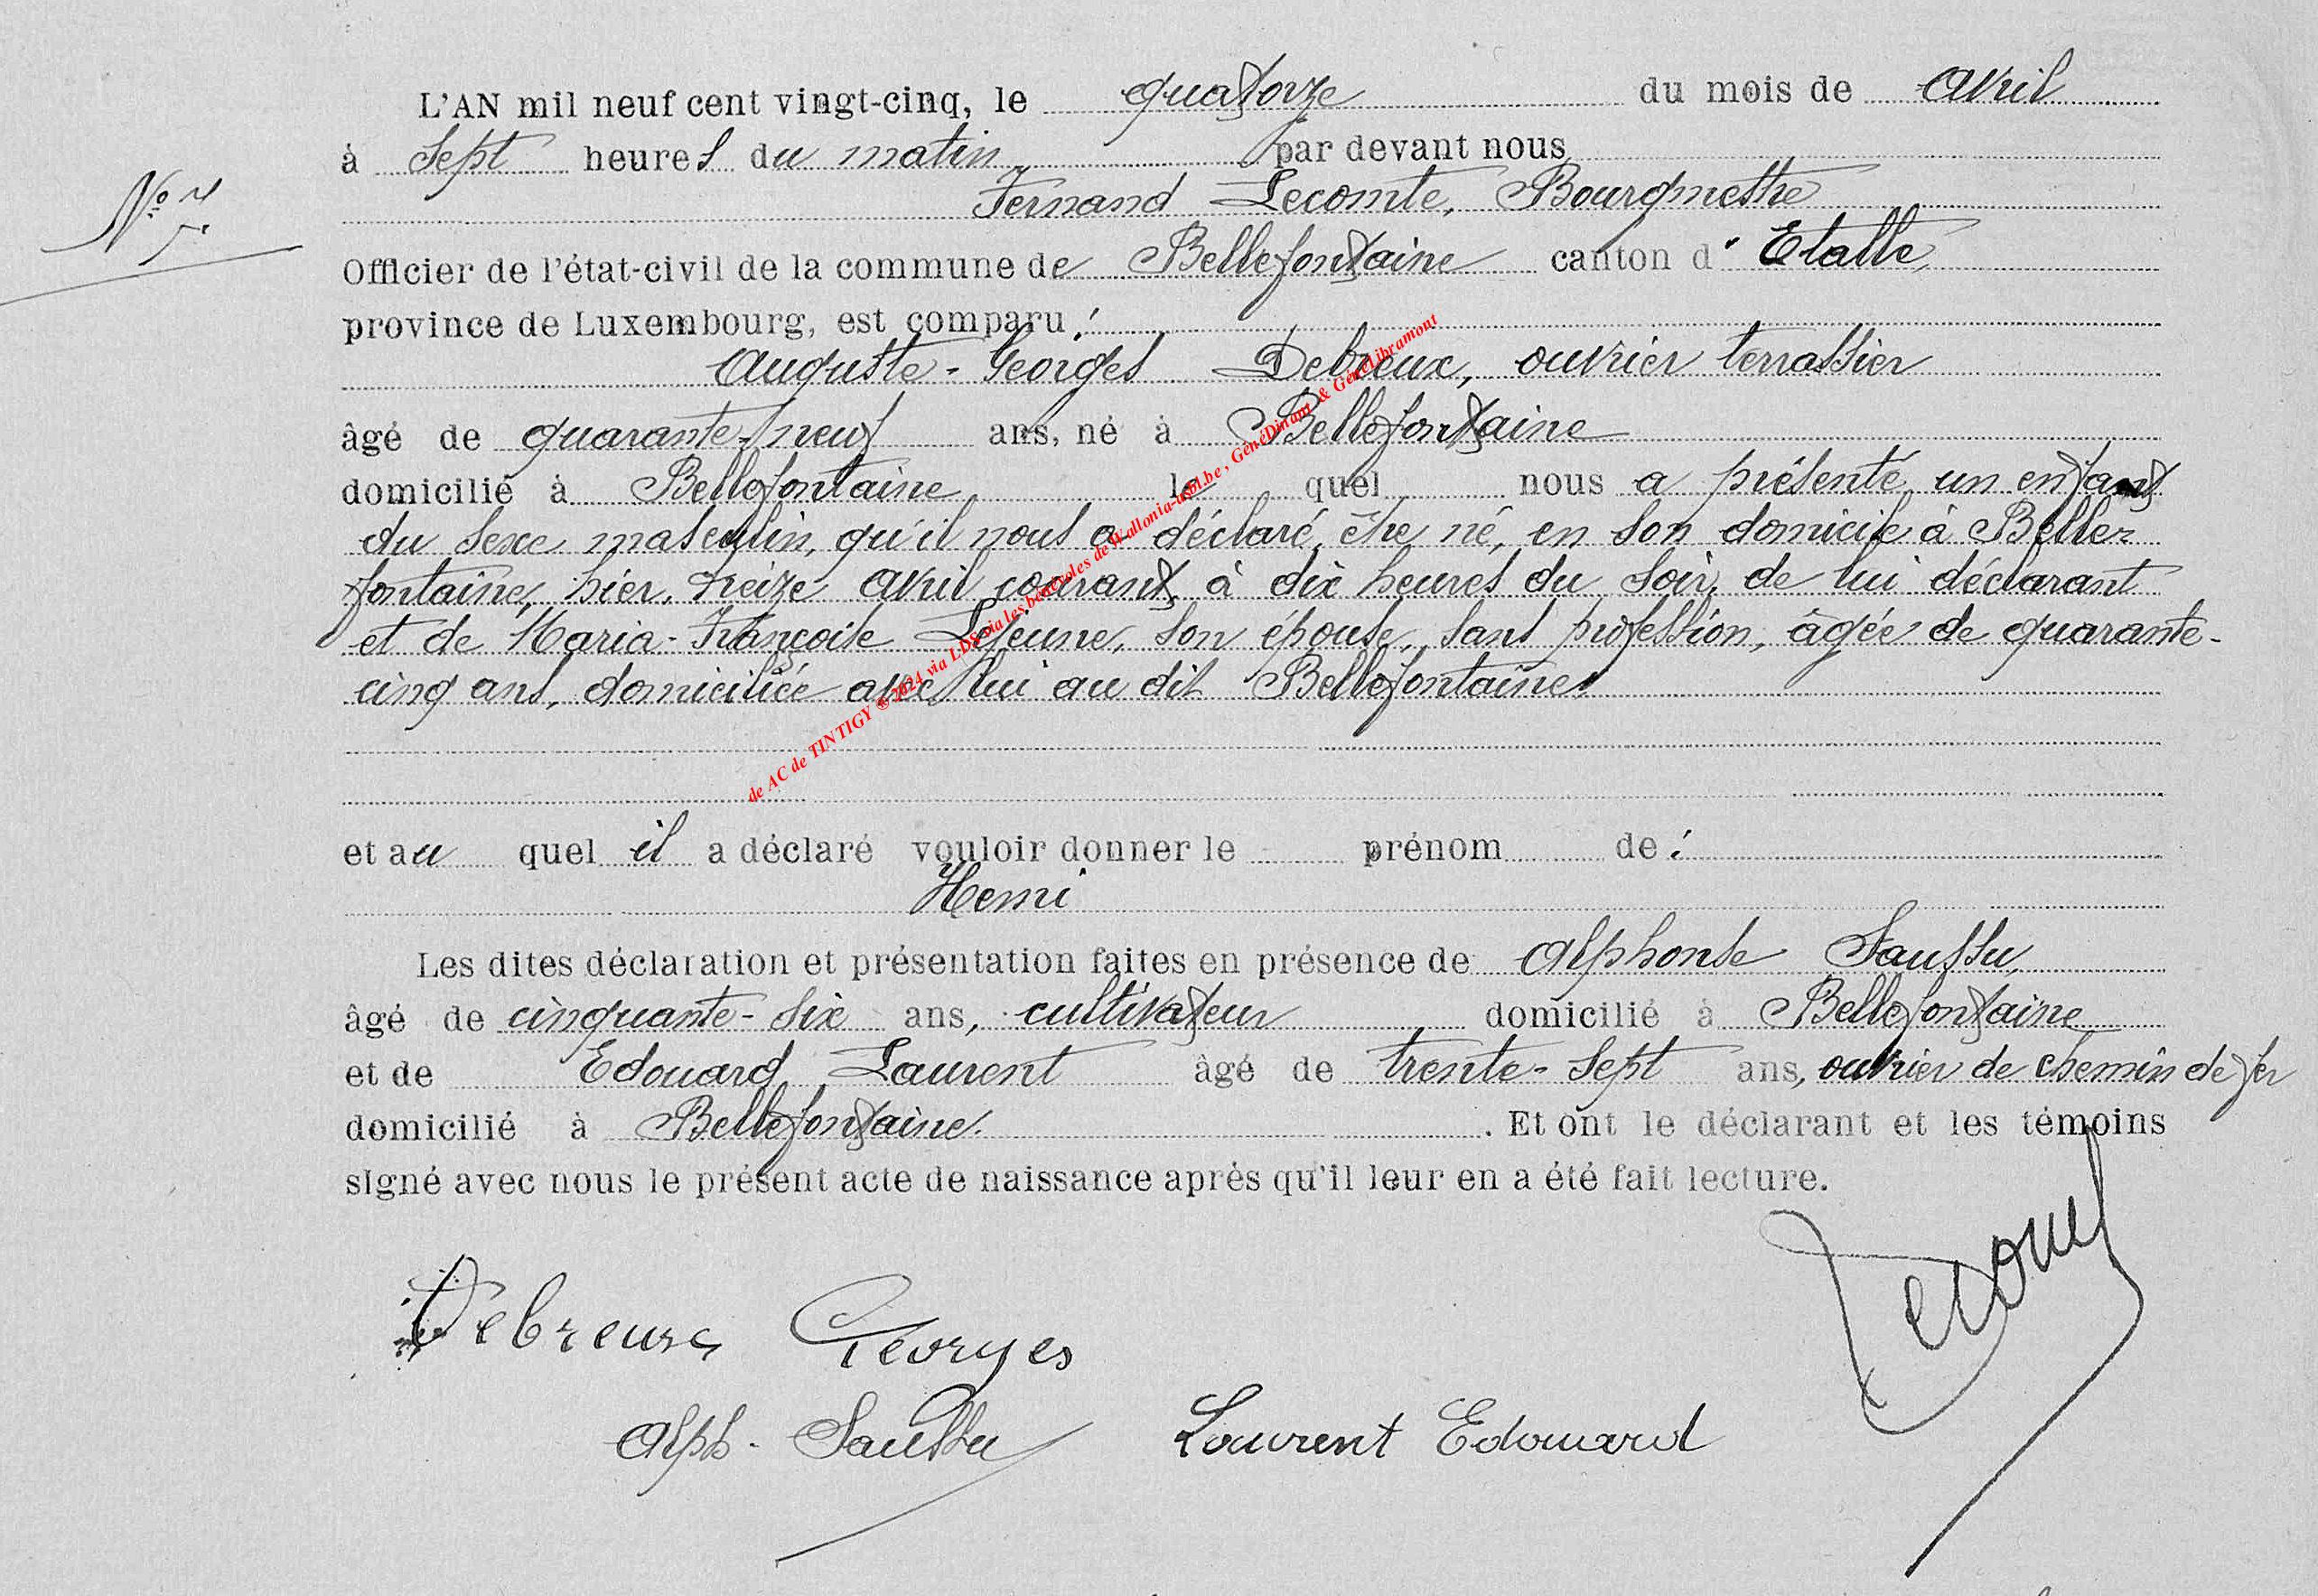 L'AN mil neuf cent vingt-cinq, le quatorze du mois de avril
à sept heures du matin par devant nous
Fernand Lecomte, Bourgmestre
N° 7.
Officier de l'état-civil de la commune de Bellefontaine canton d'Etalle,
province de Luxembourg, est comparu :
Auguste-Georges Debreux, ouvrier terrassier
âgé de quarante-neuf ans, né à Bellefontaine
domicilié à Bellefontaine, le quel nous a présenté un enfant
du sexe masculin, qu'il nous a déclaré être né, en son domicile à Belle-
fontaine, hier, treize avril courant, à dix heures du soir, de lui déclarant
et de Maria-Françoise Lejeune, son épouse, sans profession, âgée de quarante-
cinq ans, domiciliée avec lui au dit Bellefontaine
et au quel il a déclaré vouloir donner le prénom de :
Henri
Les dites déclaration et présentation faites en présence de Alphonse Saussu,
âgé de cinquante-six ans, cultivateur domicilié à Bellefontaine
et de Edouard Laurent âgé de trente-sept ans, ouvrier de chemin de fer
domicilié à Bellefontaine. . Et ont le déclarant et les témoins
signé avec nous le présent acte de naissance après qu'il leur en a été fait lecture.
Debreux Georges
Alph. Saussu Laurent Edouard
de AC de TINTIGY ©2024 via LDS via les bénévoles de Wallonia-asbl.be, GénéDinant & GénéLibramont